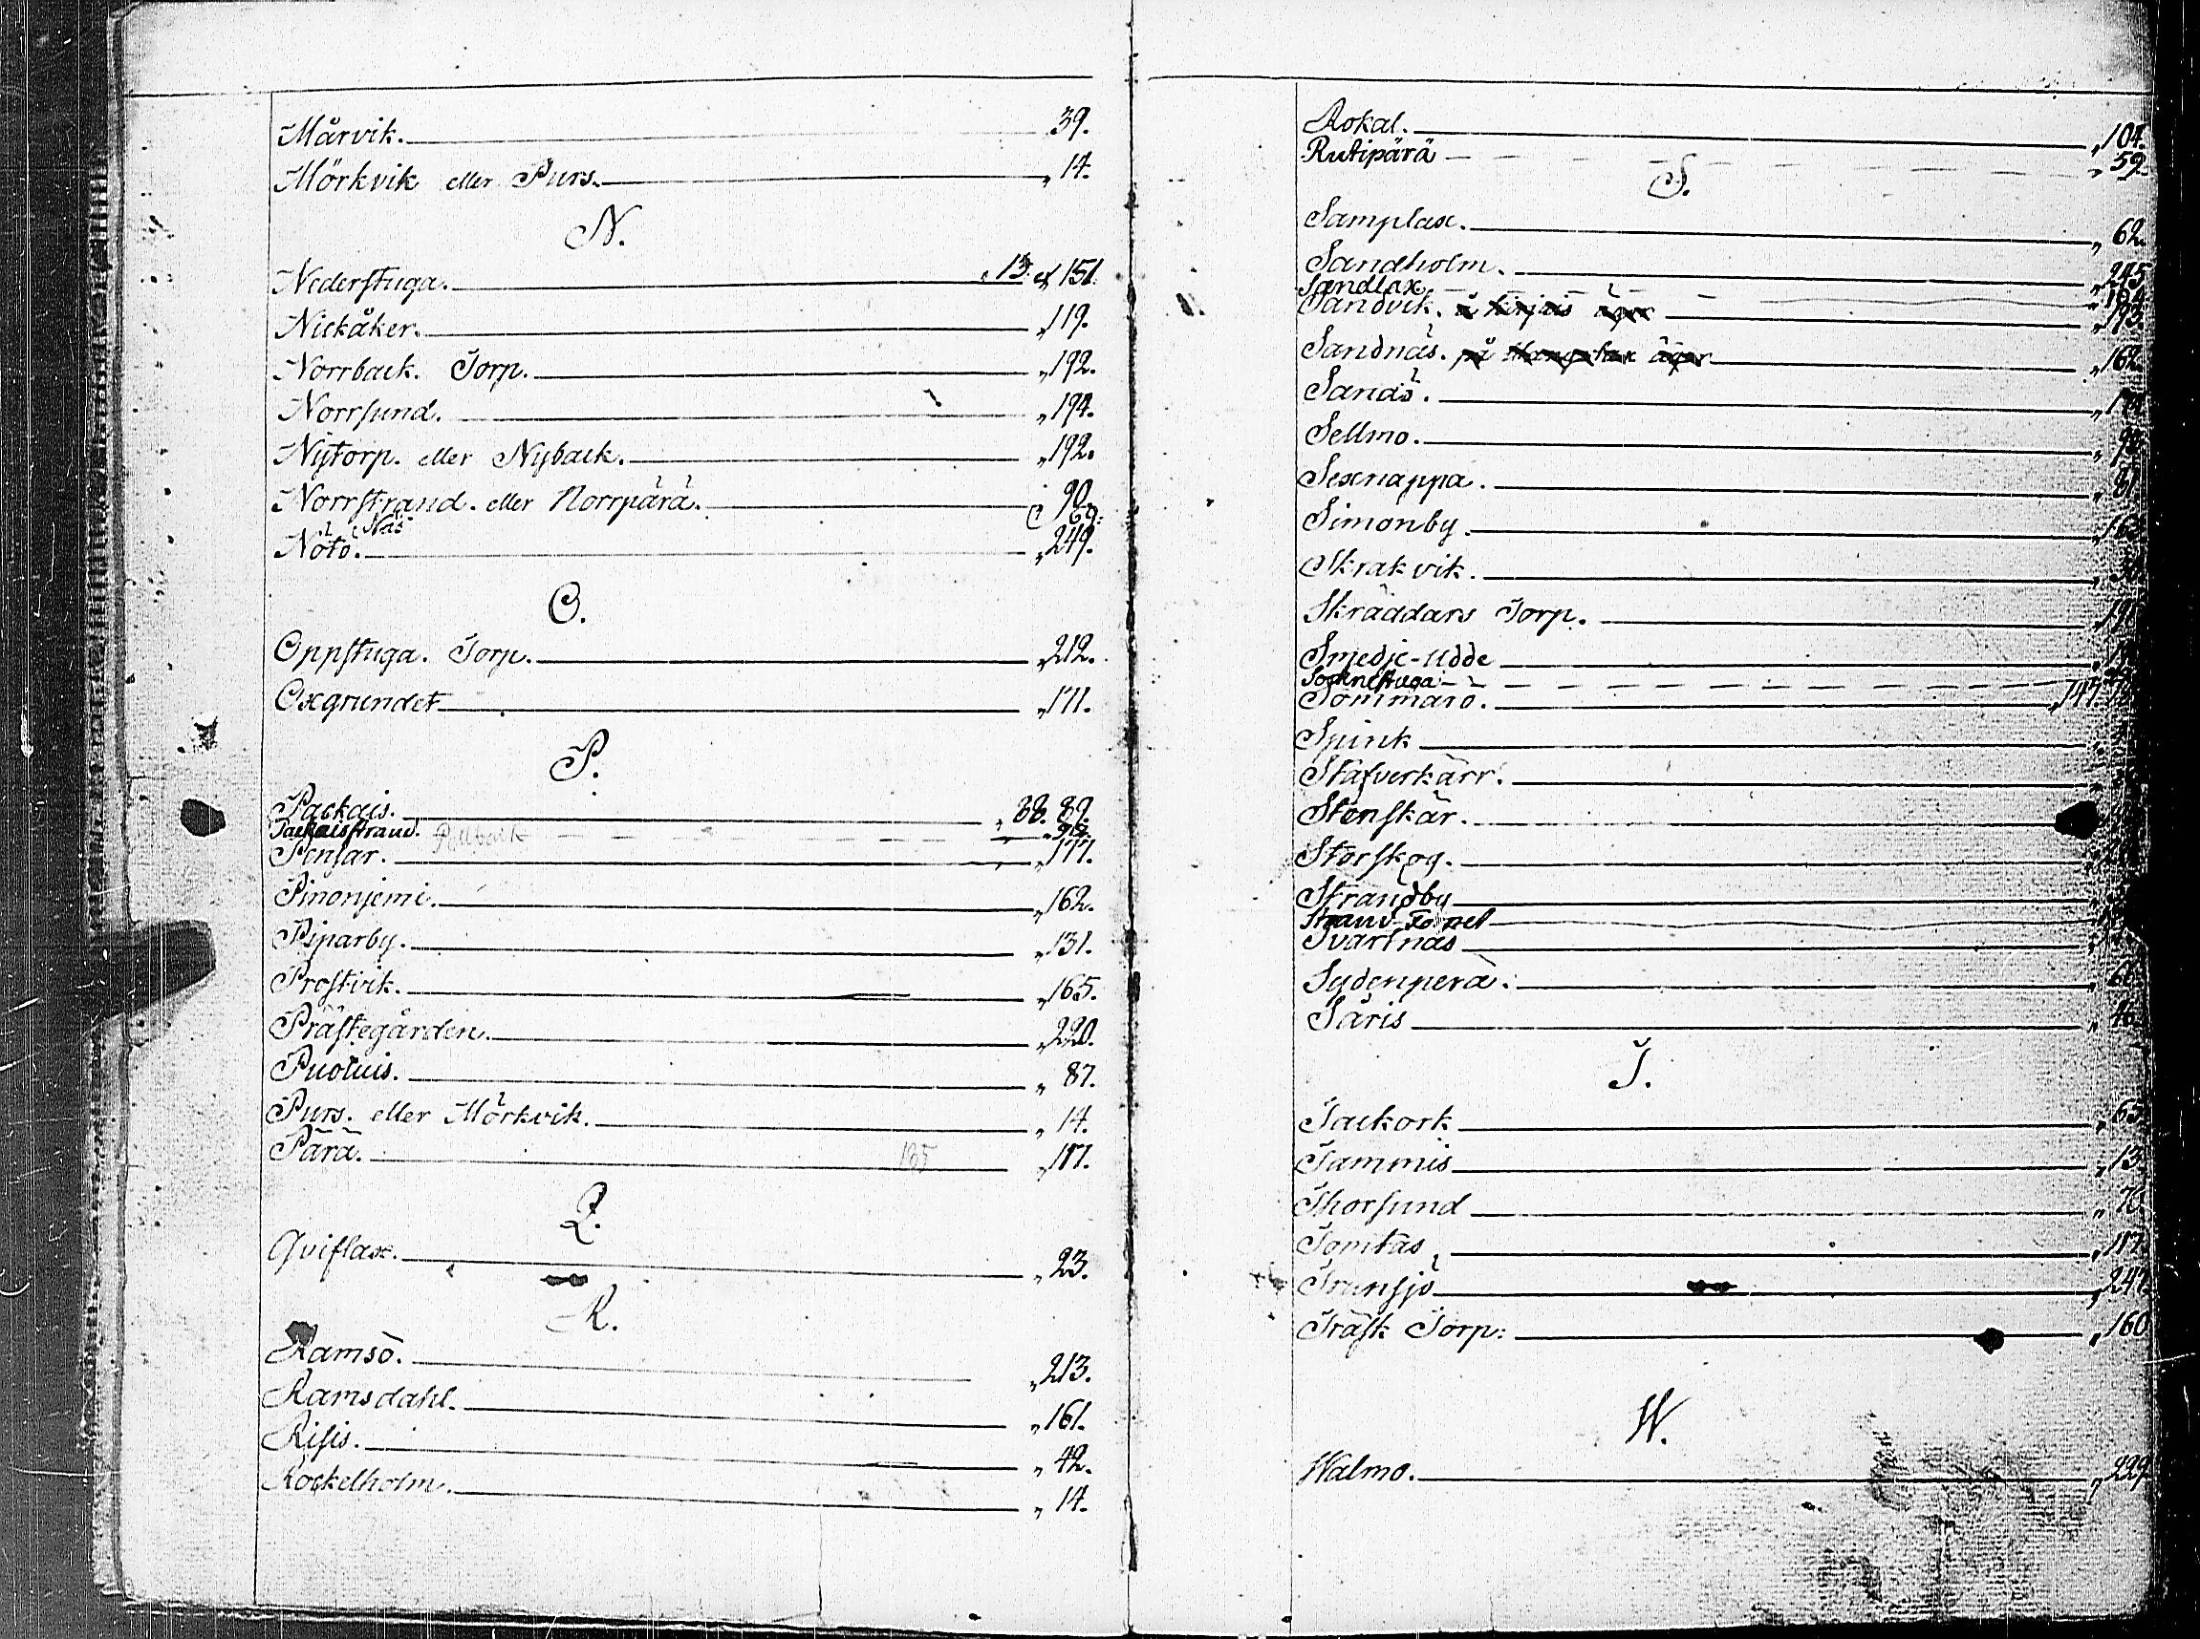 Mårvik. 39.
Mörkvik eller Purs. " 14.
N.
Nederstuga. " 13. et 151.
Nickåker. " 119.
Norrback. Torp. " 192.
Norrsund. " 194.
Nytorp. eller Nyback. " 192.
Norrstrand. eller Norrpärä. 90.
Näs 69.
Nötö. " 249.
O.
Oppstuga. Torp. " 212.
Oxgrundet " 171.
P.
Packais. " 88. 89.
Packaisstrand.
Pensar. " 177.
Pinonjemi. " 162.
Piparby. " 131.
Prostvik. " 165.
Prästegården. " 220.
Puoluis. " 87.
Purs. eller Mörkvik. " 14.
Pärä. 185 " 117.
Q.
Qviflax. " 23.
R.
Ramsö. " 213.
Ramsdahl. " 161.
Risis. " 42.
Rockelholm. " 14.
Rokal. " 104.
Rutipärä " 59.
S.
Samplax. " 62.
Sandholm. " 245
Sandlax. " 184
Sandvik. " 193.
Sandnäs. " 162.
Sanäs.
Sellmo.
Sexnappa. " 81
Simonby.
Skrakvik.
Skräddars Torp.
Smedje-Udde
Socknestuga
Sommarö. " 147.
Spink
Stafverkärr.
Stenskär.
Storskog.
Strandby
Strand-Torpet
Svartnäs
Sydenperä.
Säris " 46
T.
Tackork " 65
Tammis " 13.
Thorsund
Tonitas " 117.
Trunsjö " 247.
Träsk Torp: " 160
W.
Walmo. " 229